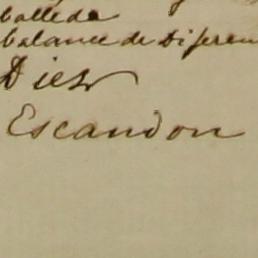 balance de Diferen
Diez
Escandon